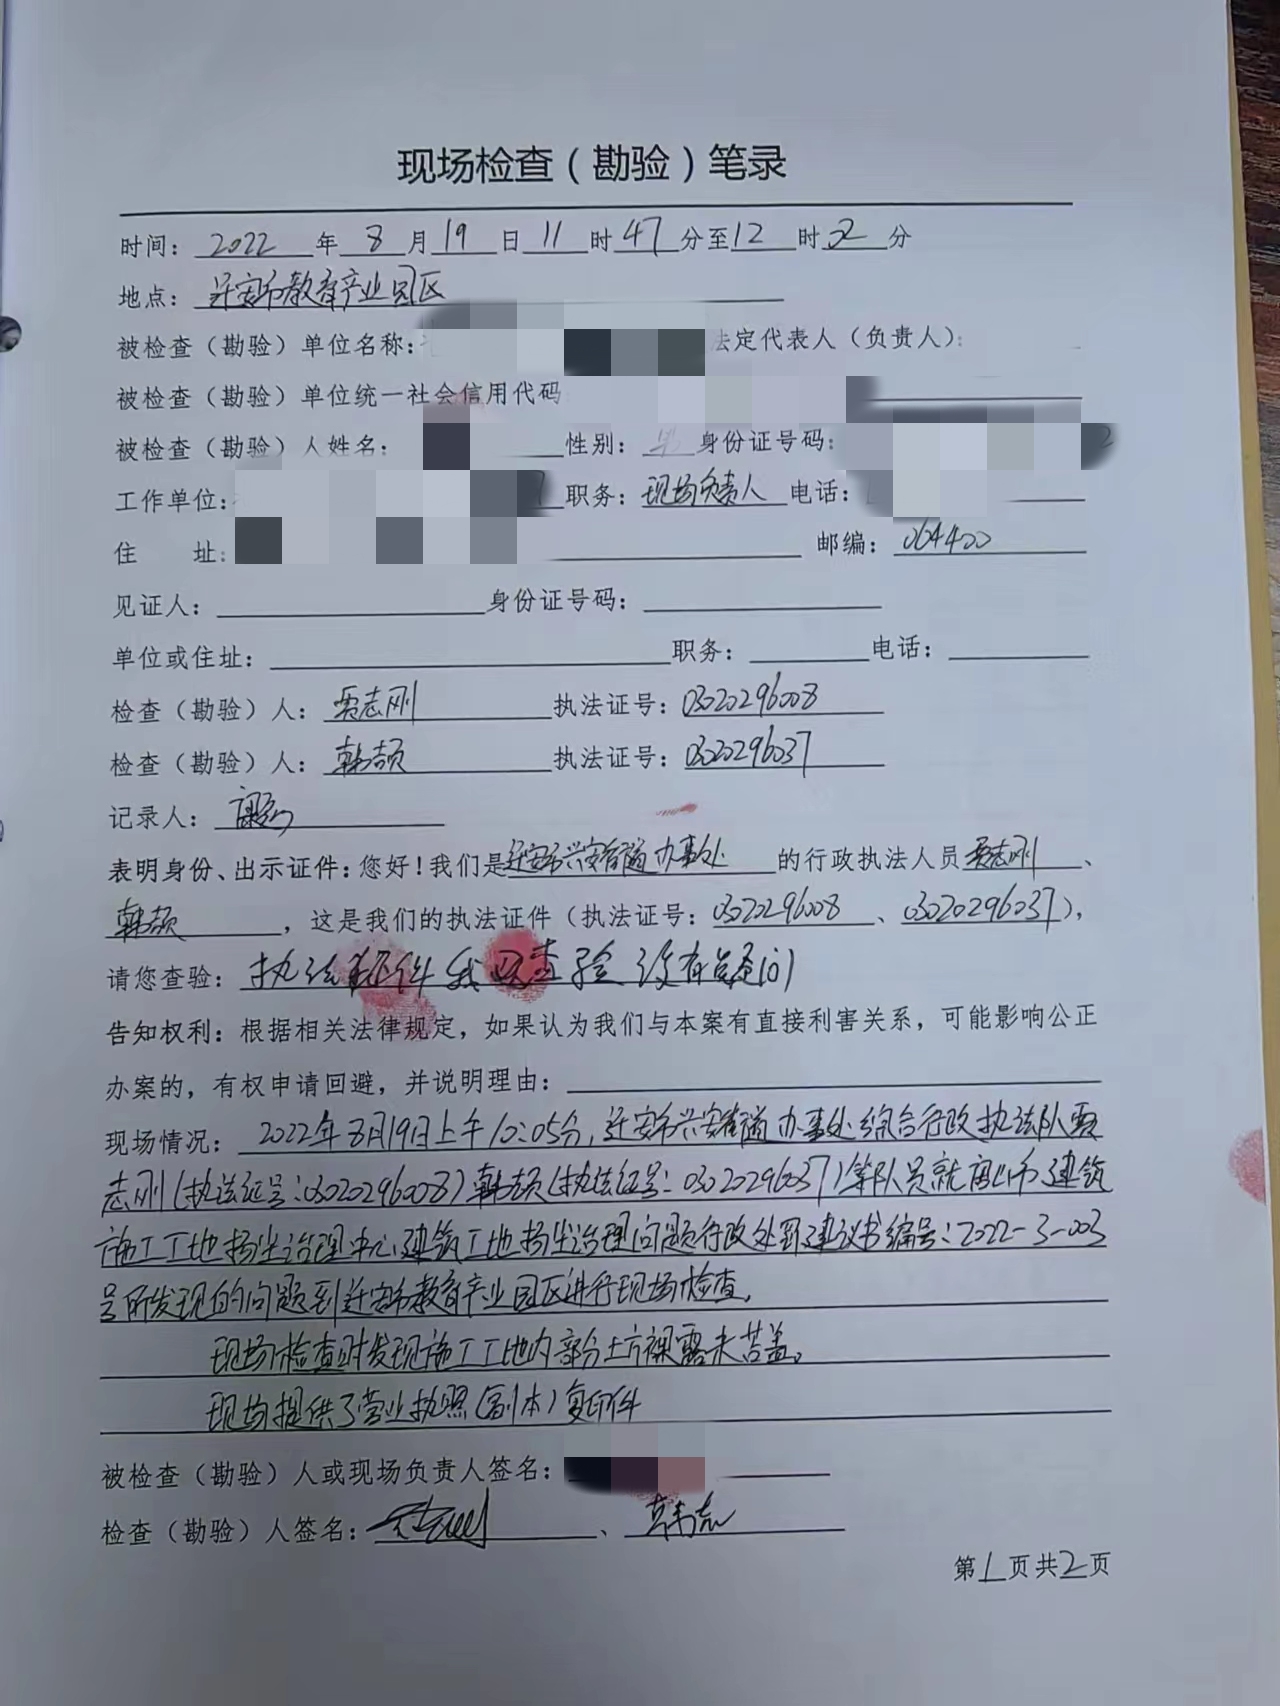 现场检查（勘验）笔录
时间：2022年8月19日11时47分至12时02分
地点：迁安市教育产业园区
被检查（勘验）单位名称：法定代表人（负责人）：
被检查（勘验）单位统一社会信用代码
被检查（勘验）人姓名：性别：男 身份证号码：
工作单位：职务：现场负责人 电话：
住 址：邮编：064400
见证人：身份证号码：
单位或住址：职务：电话：
检查（勘验）人：贾志刚 执法证号：03020296008
检查（勘验）人：韩颉 执法证号：03020296037
记录人：
表明身份、出示证件：您好！我们是迁安市兴安街道办事处的行政执法人员贾志刚、
韩颉，这是我们的执法证件（执法证号：03020296008、03020296037），
请您查验：执法证件我已查验没有疑问
告知权利：根据相关法律规定，如果认为我们与本案有直接利害关系，可能影响公正
办案的，有权申请回避，并说明理由：
现场情况：2022年8月19日上午10:05分，迁安市兴安街道办事处综合行政执法队贾
志刚（执法证号：03020296008）韩颉（执法证号：03020296037）等队员就唐山市建筑
施工工地扬尘治理中心建筑工地扬尘治理问题行政处罚建议书编号：2022-3-003
号所发现的问题到迁安市教育产业园区进行现场检查。
现场检查时发现施工工地内部分土方裸露未苫盖。
现场提供了营业执照（副本）复印件
被检查（勘验）人或现场负责人签名：
检查（勘验）人签名：、
第1页共2页